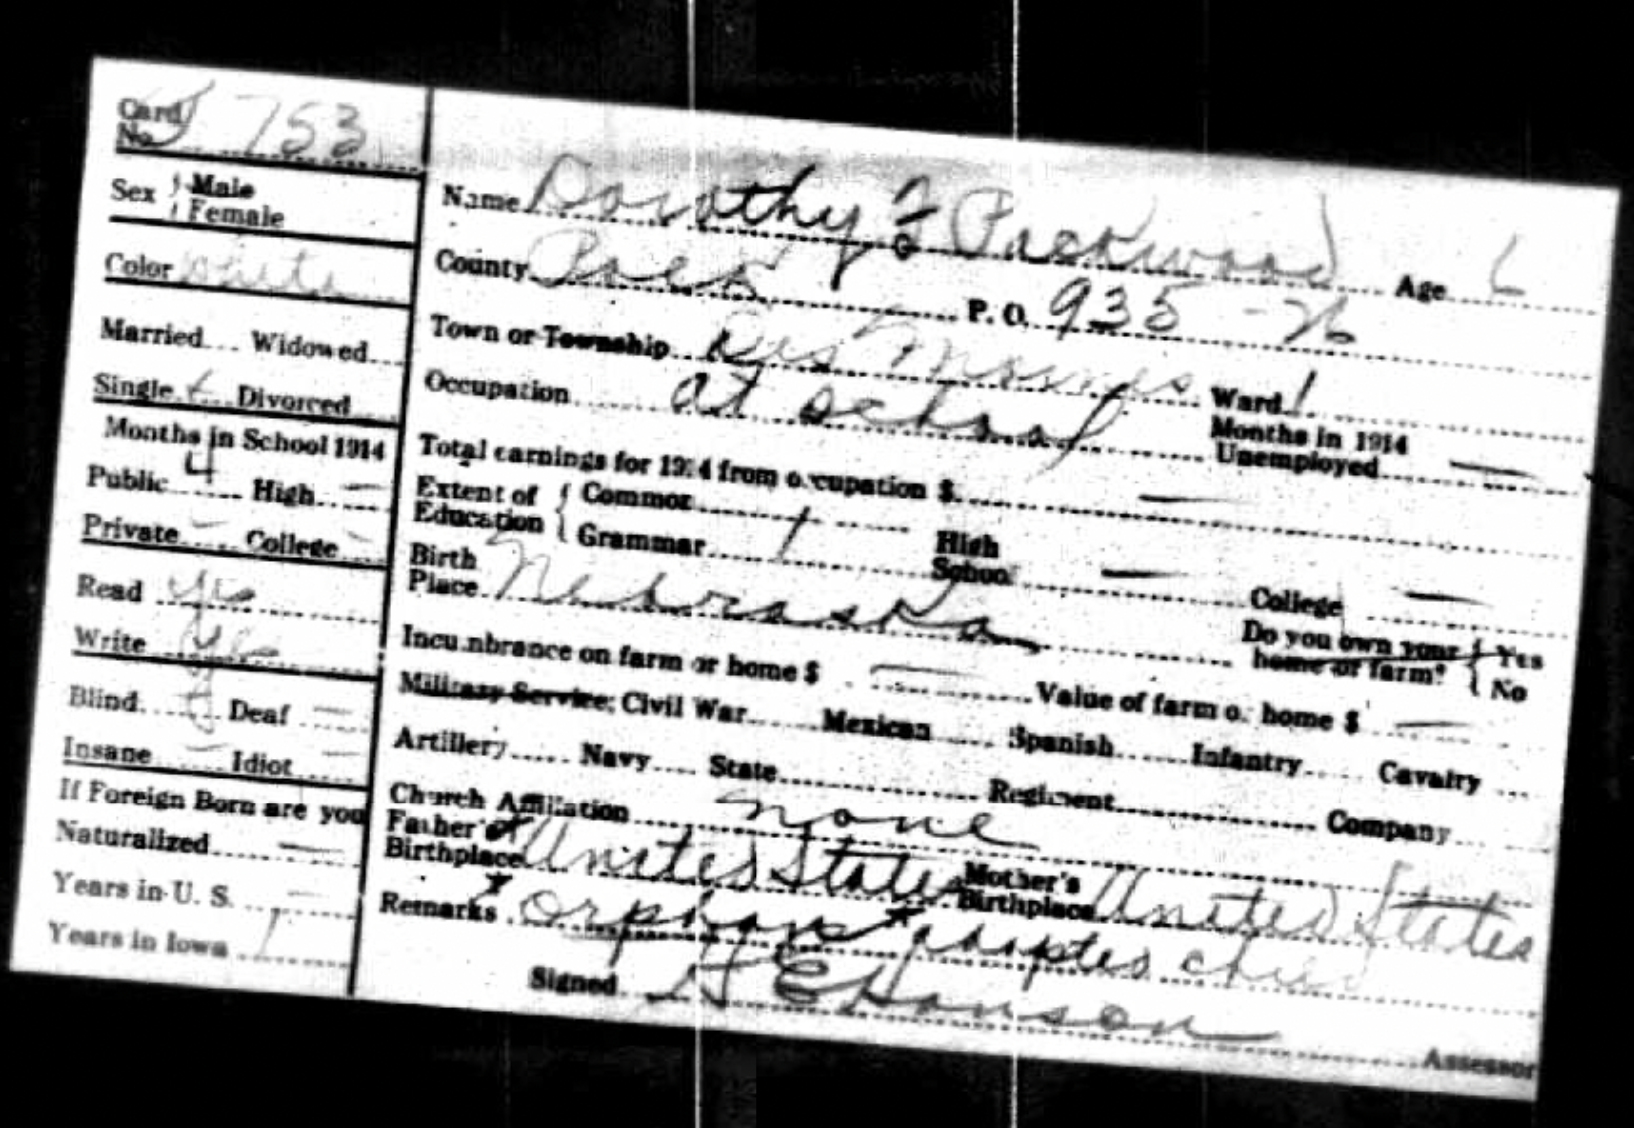 Card No. 753
Sex { Male
Female
Color White
Married... Widowed...
Single... Divorced
Months in School 1914
Public 4 High —
Private — College —
Read yes
Write yes
Blind... Deaf —
Insane — Idiot —
If Foreign Born are you
Naturalized —
Years in U. S. —
Years in Iowa 1
Name Dorothy F Packwood Age 6
County Polk P. O. 935 - 26
Town or Township Des Moines Ward 1
Occupation at school Months in 1914 Unemployed —
Total earnings for 1914 from occupation $ —
Extent of Education { Common / Grammar 1 High School — College —
Birth Place Nebraska Do you own your home or farm? { Yes No
Incumbrance on farm or home $ — Value of farm or home $ —
Military Service; Civil War... Mexican... Spanish... Infantry... Cavalry...
Artillery... Navy... State... Regiment... Company...
Church Affiliation none
Father's Birthplace United States Mother's Birthplace United States
Remarks * orphans * adopted child
Signed H E Hanson Assessor